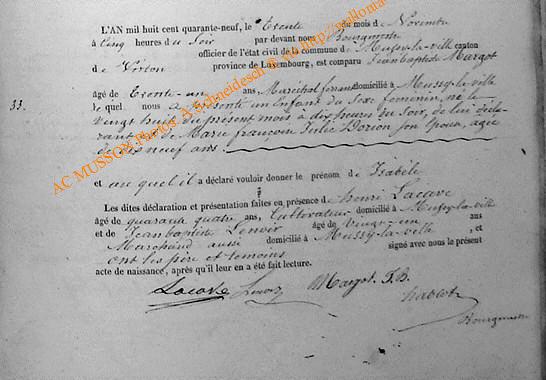 L'AN mil huit cent quarante-neuf, le Trente du mois de Novembre
à Cinq heures du Soir par devant nous Bourgmestre
officier de l'état civil de la commune de Mussy-la-ville canton
de Virton province de Luxembourg, est comparu Jean baptiste Margot
âgé de Trente-un ans, Maréchal ferrant domicilié à Mussy-la-ville
33.
lequel nous a présenté un Enfant du Sexe feminin, né le
vingt huit du présent mois à dix heures du Soir, de lui décla-
rant et de Marie françoise Dorion son épouse, agée
de dix neuf ans.
et au quel il a déclaré vouloir donner le prénom de Isabéle
Les dites déclaration et présentation faites en présence de henri Lacave
âgé de quarante quatre ans, Cultivateur domicilié à Mussy-la-ville
et de Jean baptiste Lenoir âgé de Vingt-un ans
Marchand aussi domicilié à Mussy-la-ville, et
ont les père et temoins signé avec nous le présent
acte de naissance, après qu'il leur en a été fait lecture.
Lacave Lenoir Margot J.B.
Bourgmestre
AC MUSSON Photos A Schneidesch